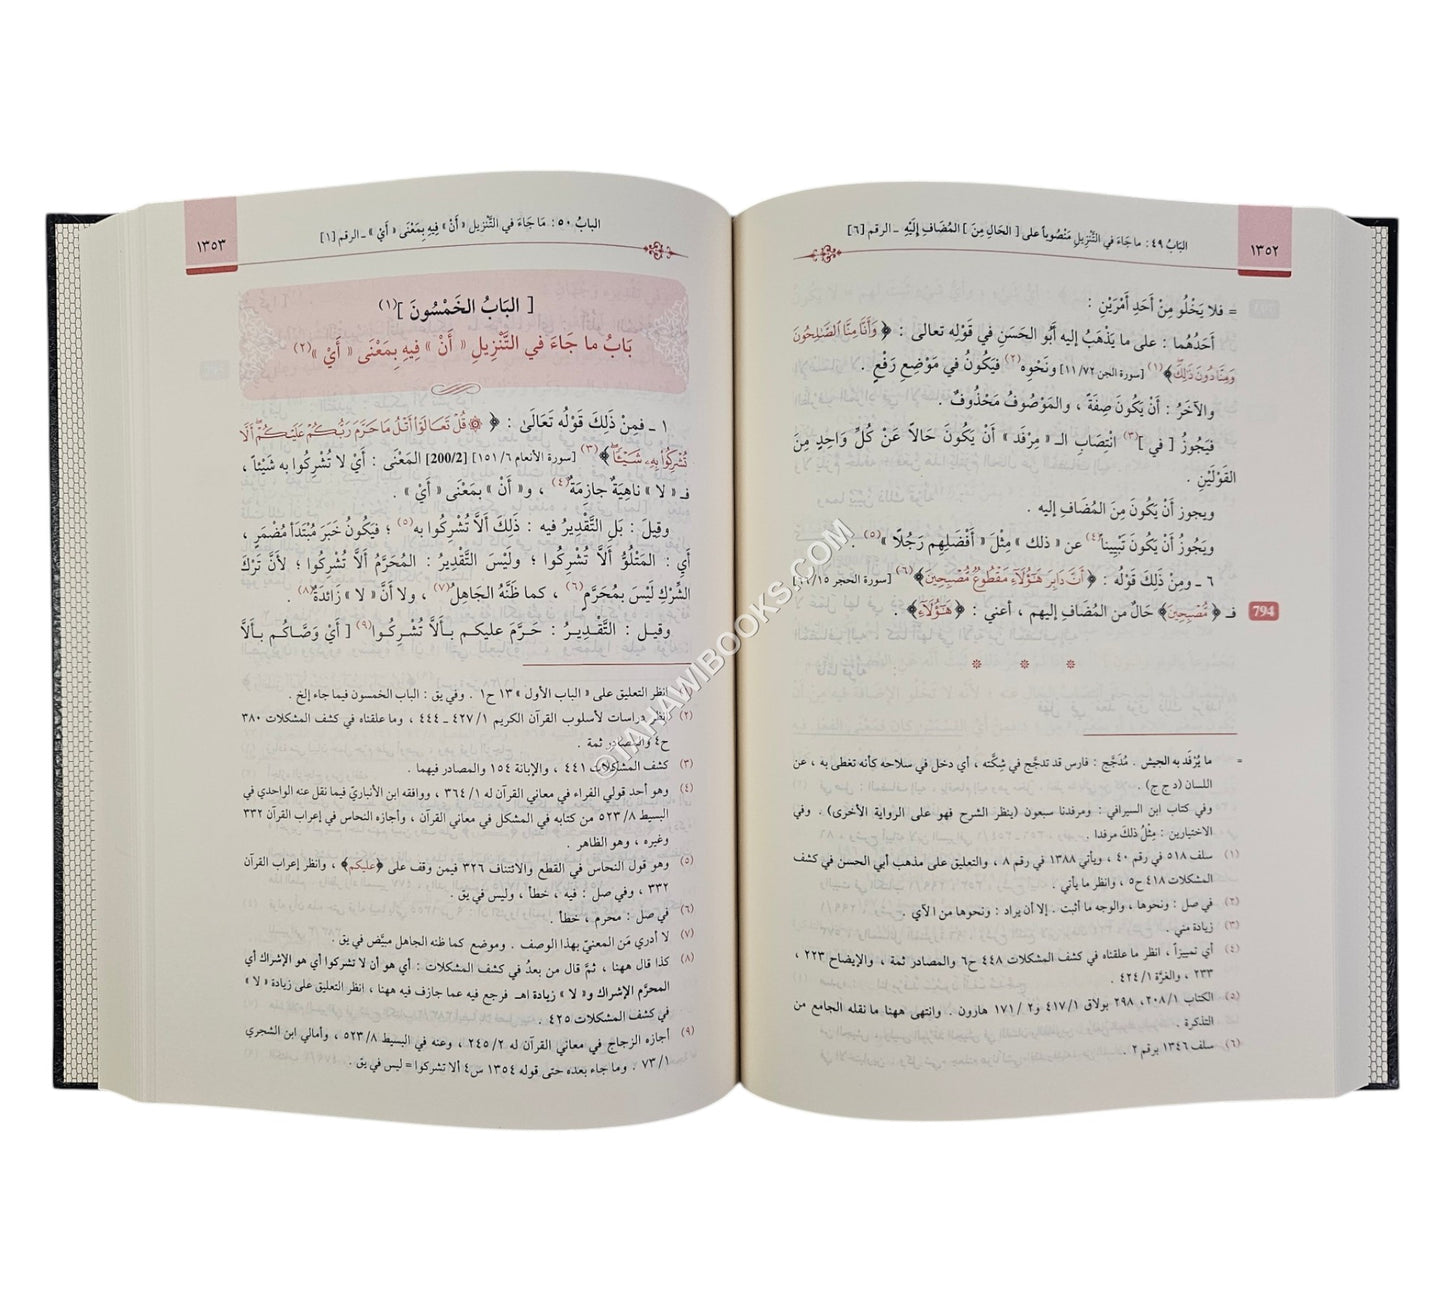 ١٣٥٢
البَابُ ٤٩ : ما جَاءَ في التَّنْزِيلِ مَنْصُوباً على [ الحَالِ مِنَ ] المُضَافِ إِلَيْهِ ـ الرقم [٦]
= فلا يَخْلُو مِنْ أَحَدِ أَمْرَيْنِ :
أَحَدُهُما : على ما يَذْهَبُ إليه أَبُو الحَسَنِ في قَوْلِه تعالى : ﴿ وَأَنَّا مِنَّا ٱلصَّٰلِحُونَ
وَمِنَّا دُونَ ذَٰلِكَ ﴾(١) [سورة الجن ١١/٧٢] ونَحْوِه(٢) فيَكُونُ في مَوْضِعِ رَفْعٍ .
والآخَرُ : أَنْ يَكُونَ صِفَةً ، والمَوْصُوفُ مَحْذُوفٌ .
فيَجُوزُ [ في ](٣) انْتِصَابِ الـ « مِرْفَد » أَنْ يَكُونَ حَالاً عَنْ كُلِّ وَاحِدٍ مِنَ
القَوْلَيْنِ .
ويجوز أَنْ يَكُونَ مِنَ المُضَافِ إليه .
ويَجُوزُ أَنْ يَكُونَ تَبْيِيناً(٤) عن « ذلك » مِثْلَ « أَفْضَلِهِم رَجُلًا »(٥) .
٦ ـ ومِنْ ذَلِكَ قَوْلُه : ﴿ أَنَّ دَابِرَ هَٰٓؤُلَآءِ مَقْطُوعٌ مُّصْبِحِينَ ﴾(٦) [سورة الحجر ١٥/
794
فـ ﴿ مُّصْبِحِينَ ﴾ حَالٌ من المُضَافِ إليهم ، أعني : ﴿ هَٰٓؤُلَآءِ ﴾ .
* * *
= ما يُرْفَد به الجيش . مُدَجَّج : فارس قد تدجَّج في شِكَّته ، أي دخل في سلاحه كأنه تغطى به ، عن
اللسان (د ج ج) .
وفي كتاب ابن السيرافي : ومرفدنا سبعون (ينظر الشرح فهو على الرواية الأخرى) . وفي
الاختيارين : مِثْلُ ذلكَ مرفدا .
(١) سلف ٥١٨ في رقم ٤٠ ، ويأتي ١٣٨٨ في رقم ٨ ، والتعليق على مذهب أبي الحسن في كشف
المشكلات ٤١٨ ح٥ ، وانظر ما يأتي .
(٢) في صل : ونحوها ، والوجه ما أثبت . إلا أن يراد : ونحوها من الآي .
(٣) زيادة مني .
(٤) أي تمييزاً ، انظر ما علقناه في كشف المشكلات ٤٤٨ ح٦ والمصادر ثمة ، والإيضاح ٢٢٣ ،
٢٣٣ ، والغرَّة ٤٢٤/١ .
(٥) الكتاب ٢٠٨/١، ٢٩٨ بولاق ٤١٧/١ و٢/ ١٧١ هارون . وانتهى ههنا ما نقله الجامع من
التذكرة .
(٦) سلف ١٣٤٦ برقم ٢ .
١٣٥٣
البابُ ٥٠ : مَا جَاءَ في التَّنْزِيل « أَنْ » فِيهِ بِمَعْنَى « أَيْ » ـ الرقم [١]
[ البَابُ الخَمْسُونَ ](١)
بَابُ ما جَاءَ في التَّنْزِيلِ « أَنْ » فِيهِ بِمَعْنَى « أَيْ »(٢)
١ ـ فمِنْ ذَلِكَ قَوْلُه تَعَالَىٰ : ﴿ ۞ قُلْ تَعَالَوْا۟ أَتْلُ مَا حَرَّمَ رَبُّكُمْ عَلَيْكُمْ ۖ أَلَّا
تُشْرِكُوا۟ بِهِۦ شَيْـًٔا ۖ ﴾(٣) [سورة الأنعام ١٥١/٦] [200/2] المَعْنَى : أَيْ لا تُشْرِكُوا به شَيْئاً ،
فـ « لا » ناهِيَةٌ جازِمَةٌ(٤) ، و« أَنْ » بمَعْنَى « أَيْ » .
وقِيلَ : بَلِ التَّقْدِيرُ فيه : ذَلِكَ أَلاَّ تُشْرِكُوا به(٥) ؛ فيَكُونُ خَبَرَ مُبْتَدَأ مُضْمَرٍ ،
أي : المَتْلُوُّ أَلاَّ تُشْرِكُوا ؛ ولَيْسَ التَّقْدِيرُ : المُحَرَّمُ أَلاَّ تُشْرِكُوا ؛ لأَنَّ تَرْكَ
الشِّرْكِ لَيْسَ بمُحَرَّمٍ(٦) ، كما ظَنَّهُ الجَاهِلُ(٧) ، ولا أَنَّ « لا » زَائدَةٌ(٨) .
وقيـل : التَّقْدِيـرُ : حَرَّم عليكم بـأَلاَّ تُشْـرِكُـوا(٩) [ أَيْ وَصَّاكُـم بـأَلاَّ
انظر التعليق على « الباب الأول » ١٣ ح١ . وفي يق : الباب الخمسون فيما جاء إلخ .
(٢) انظر دراسات لأسلوب القرآن الكريم ١/ ٤٢٧ ـ ٤٤٤ ، وما علقناه في كشف المشكلات ٣٨٠
ح٤ والمصادر ثمة .
(٣) كشف المشكلات ٤٤١ ، والإبانة ١٥٤ والمصادر فيهما .
(٤) وهو أحد قولي الفراء في معاني القرآن له ١/ ٣٦٤ ، ووافقه ابن الأنباريّ فيما نقل عنه الواحدي في
البسيط ٨/ ٥٢٣ من كتابه في المشكل في معاني القرآن ، وأجازه النحاس في إعراب القرآن ٣٣٢
وغيره ، وهو الظاهر .
(٥) وهو قول النحاس في القطع والائتناف ٣٢٦ فيمن وقف على ﴿عليكم﴾ ، وانظر إعراب القرآن
٣٣٢ ، وفي صل : فيه ، خطأ ، وليس في يق .
(٦) في صل : محرم ، خطأ .
(٧) لا أدري مَن المعنيّ بهذا الوصف . وموضع كما ظنه الجاهل مبيَّض في يق .
(٨) كذا قال ههنا ، ثمَّ قال من بعدُ في كشف المشكلات : أي هو أن لا تشركوا أي هو الإشراك أي
المحرَّم الإشراك و« لا » زيادة اهـ فرجع فيه عما جازف فيه ههنا ، انظر التعليق على زيادة « لا »
في كشف المشكلات ٤٢٥ .
(٩) أجازه الزجاج في معاني القرآن له ٢/ ٢٤٥ ، وعنه في البسيط ٨/ ٥٢٣ ، وأمالي ابن الشجري
١/ ٧٣ . وما جاء بعده حتى قوله ١٣٥٤ س٤ ألا تشركوا = ليس في يق .
©TAHAWIBOOKS.COM